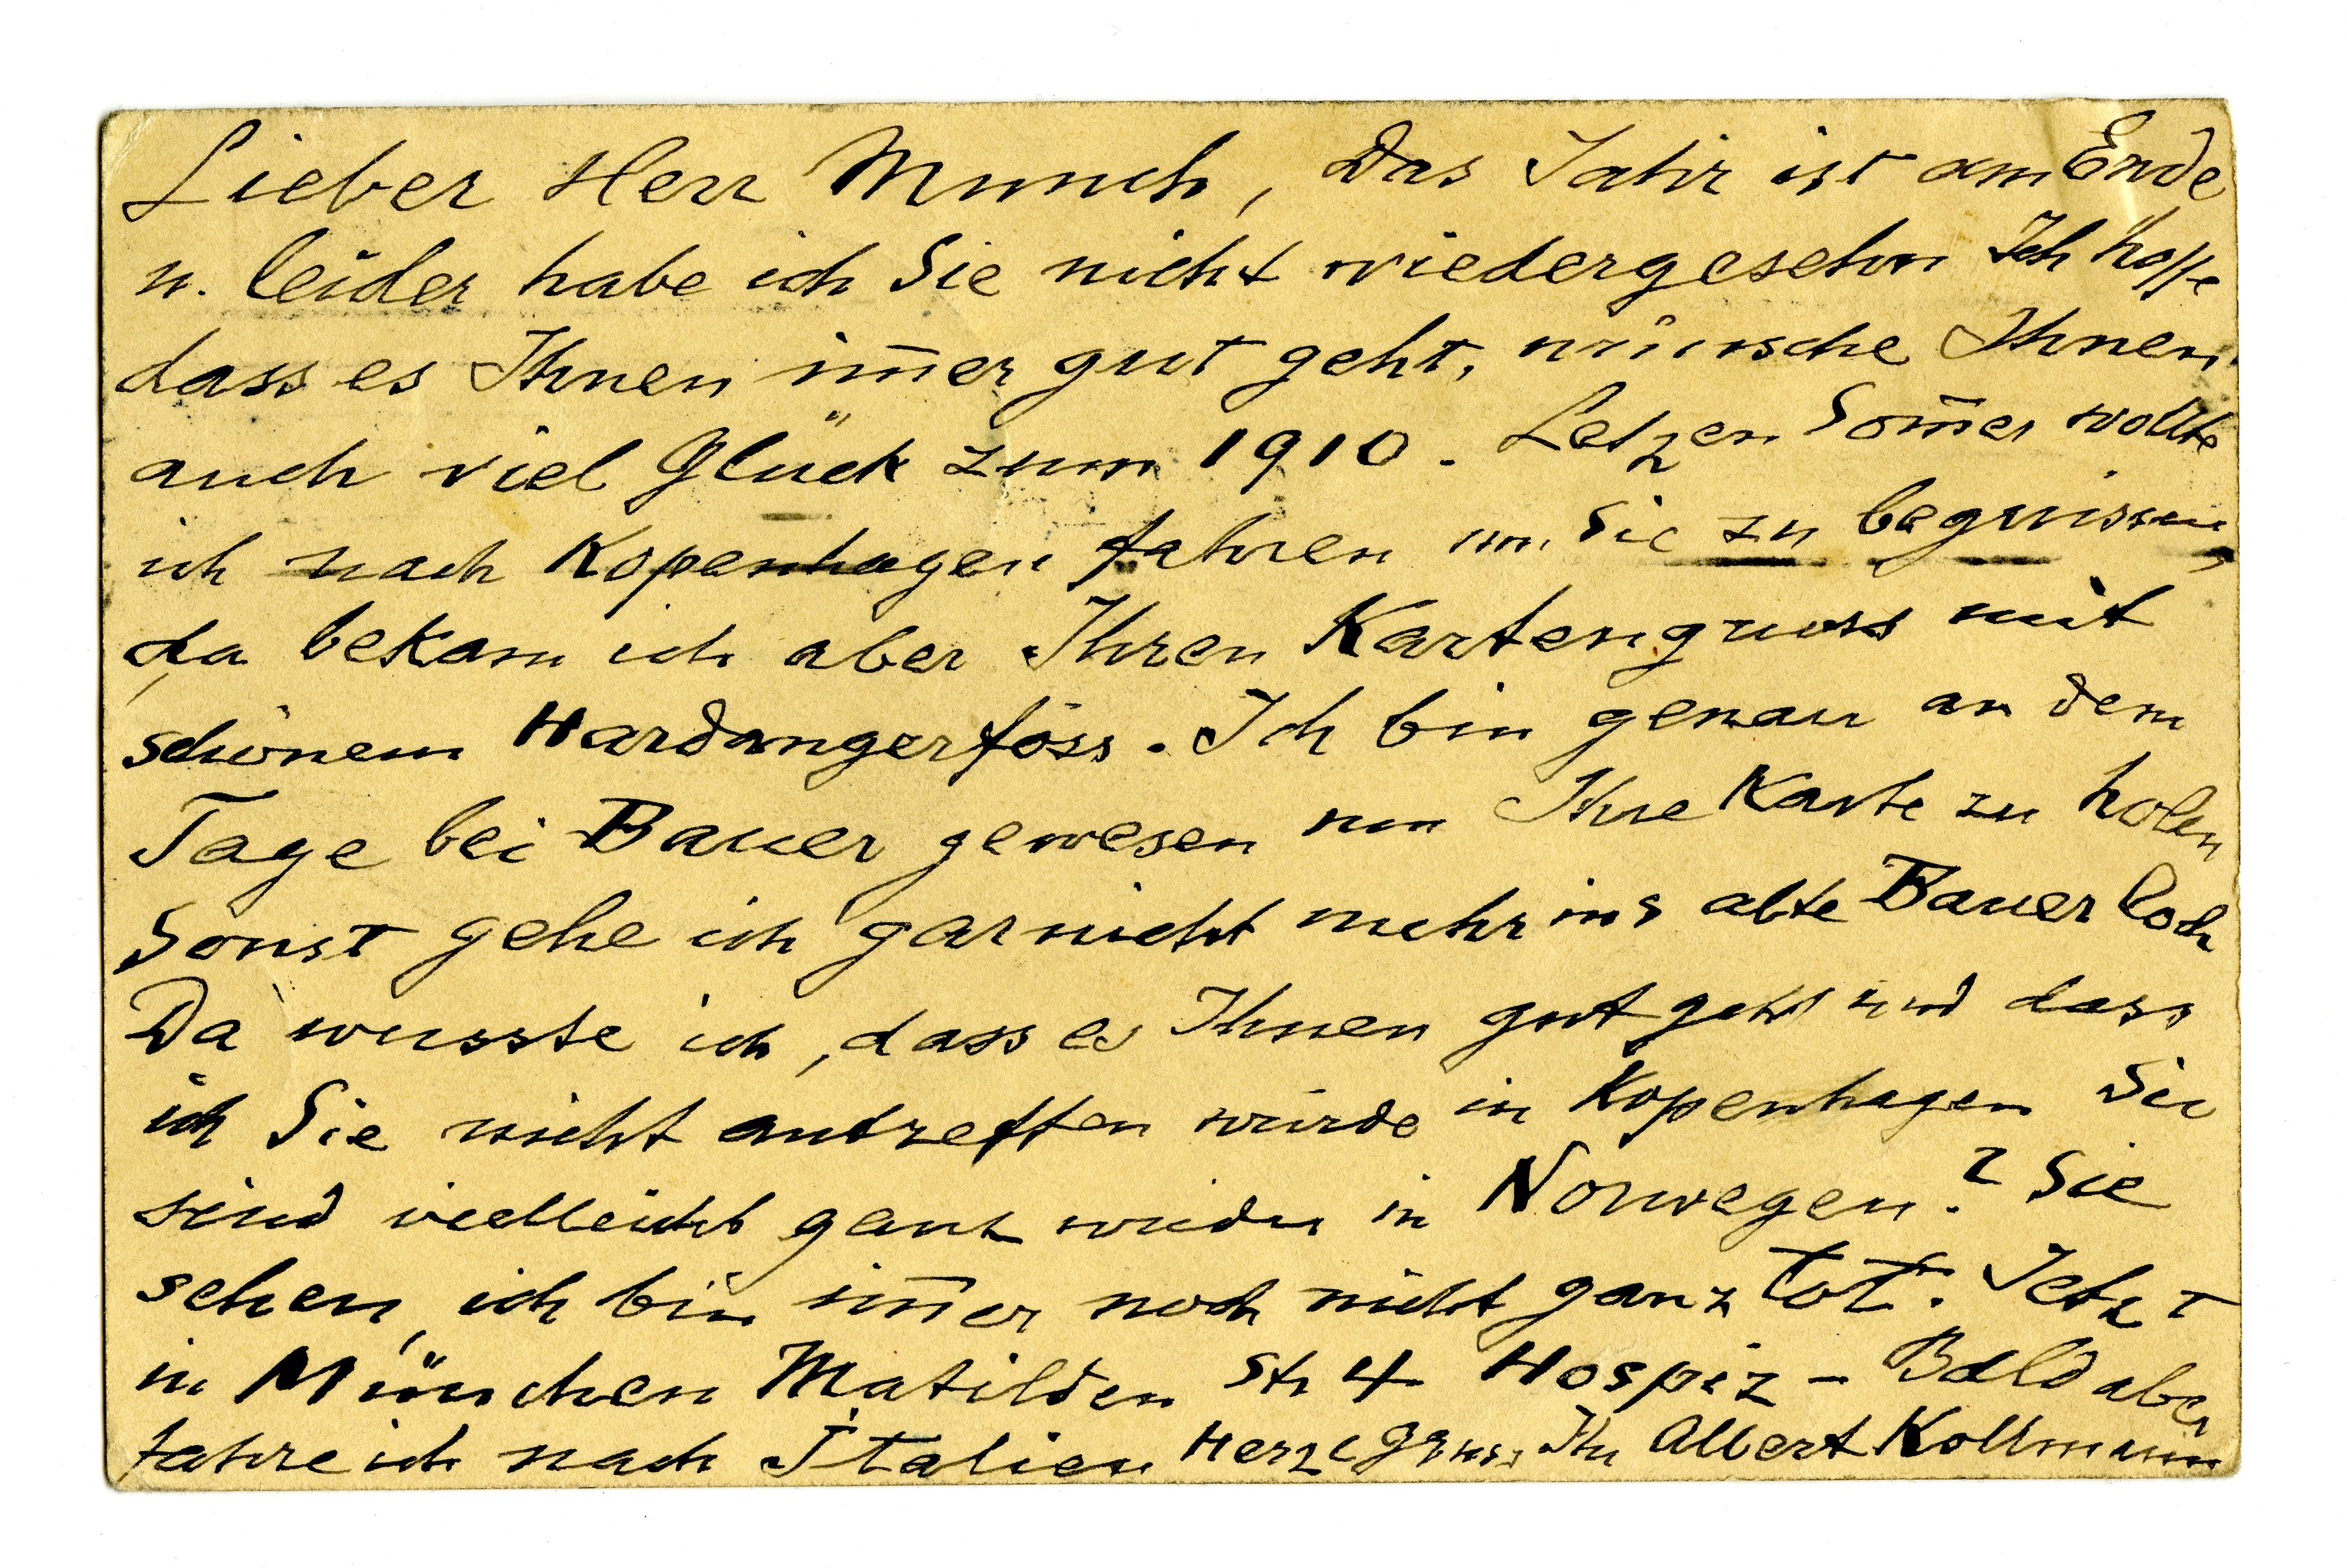 Lieber Herr Munch, Das Jahr ist am Ende
u. leider habe ich Sie nicht wiedergesehn Ich hoffe
dass es Ihnen im̄er gut geht, wünsche Ihnen
auch viel Glück zum 1910. Letzen Som̄er wollte
ich nach Kopenhagen fahren um Sie zu begrüssen,
da bekam ich aber Ihren Kartengruss mit
schönem Hardangerfoss. Ich bin genau an dem
Tage bei Bauer gewesen um Ihre Karte zu holen
Sonst gehe ich gar nicht mehr ins alte Bauerloch
Da wusste ich, dass es Ihnen gut geht und dass
ich Sie nicht antreffen würde in Kopenhagen Sie
sind vielleicht ganz wieder in Norwegen? Sie
sehen, ich bin im̄er noch nicht ganz tot. Jetzt
in München Matilden Str 4 Hospiz – Bald aber
fahre ich nach Italien Herzl Gruss Ihr Albert Kollmann